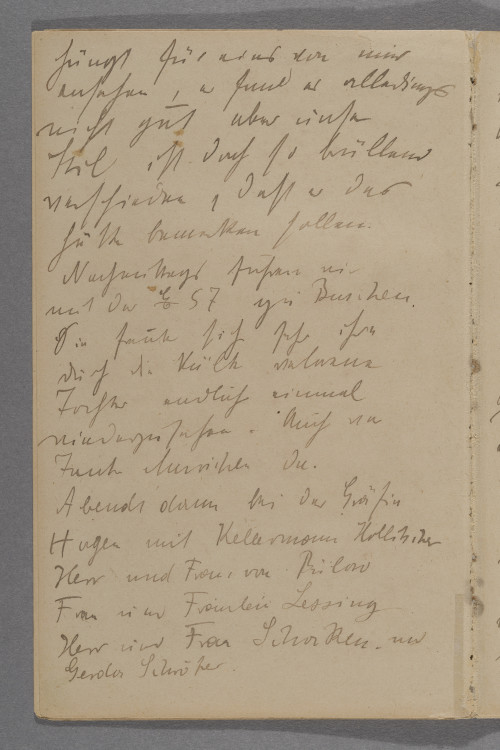 hängt für eines von mir
ansehen, er fand es allerdings
nicht gut aber unser
Stil ist doch so brüllend
verschieden, daß er das
hätte bemerken sollen.
Nachmittags fuhren wir
mit der E 57 zu Buschen.
Sie freute sich sehr ihre
durch die Kälte verlorene
Tochter endlich einmal
wiederzusehen. Auch von
Tante da.
Abends dann bei der Gräfin
Hagen mit Kellermann Hollitscher
Herr und Frau von Bülow
Frau und Fräulein Lessing
Herr und Frau und
Gerda Schröter.